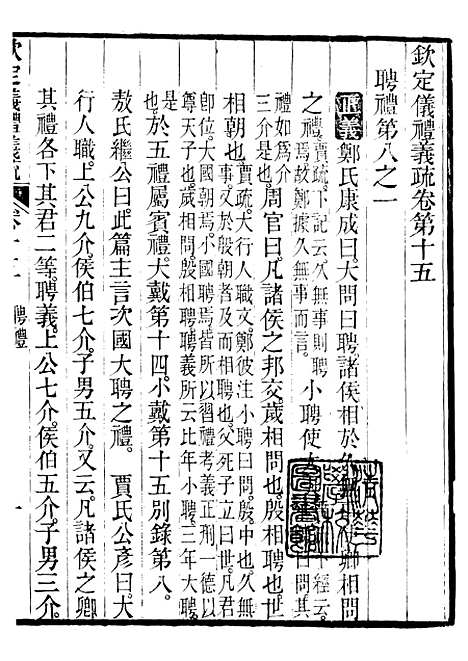 欽定儀禮義疏卷第十五
聘禮第八之一
正義鄭氏康成曰大問曰聘諸侯相於久無事使卿相問
之禮賈疏下記云久無事則聘
焉故鄭據久無事而言小聘使大
禮如爲介
三介是也周官曰凡諸侯之邦交歲相問也殷相聘也世
相朝也賈疏大行人職文鄭彼注小聘曰問殷中也久無
事又於殷朝者及而相聘也父死子立曰世凡君
卽位大國朝焉小國聘焉皆所以習禮考義正刑一德以
尊天子也歲相問殷相聘聘義所云比年小聘三年大聘
是也於五禮屬賓禮大戴第十四小戴第十五別錄第八
敖氏繼公曰此篇主言次國大聘之禮 賈氏公彥曰大
行人職上公九介侯伯七介子男五介又云凡諸侯之卿
其禮各下其君二等聘義上公七介侯伯五介子男三介
欽定儀禮義疏 卷十五 聘禮 一